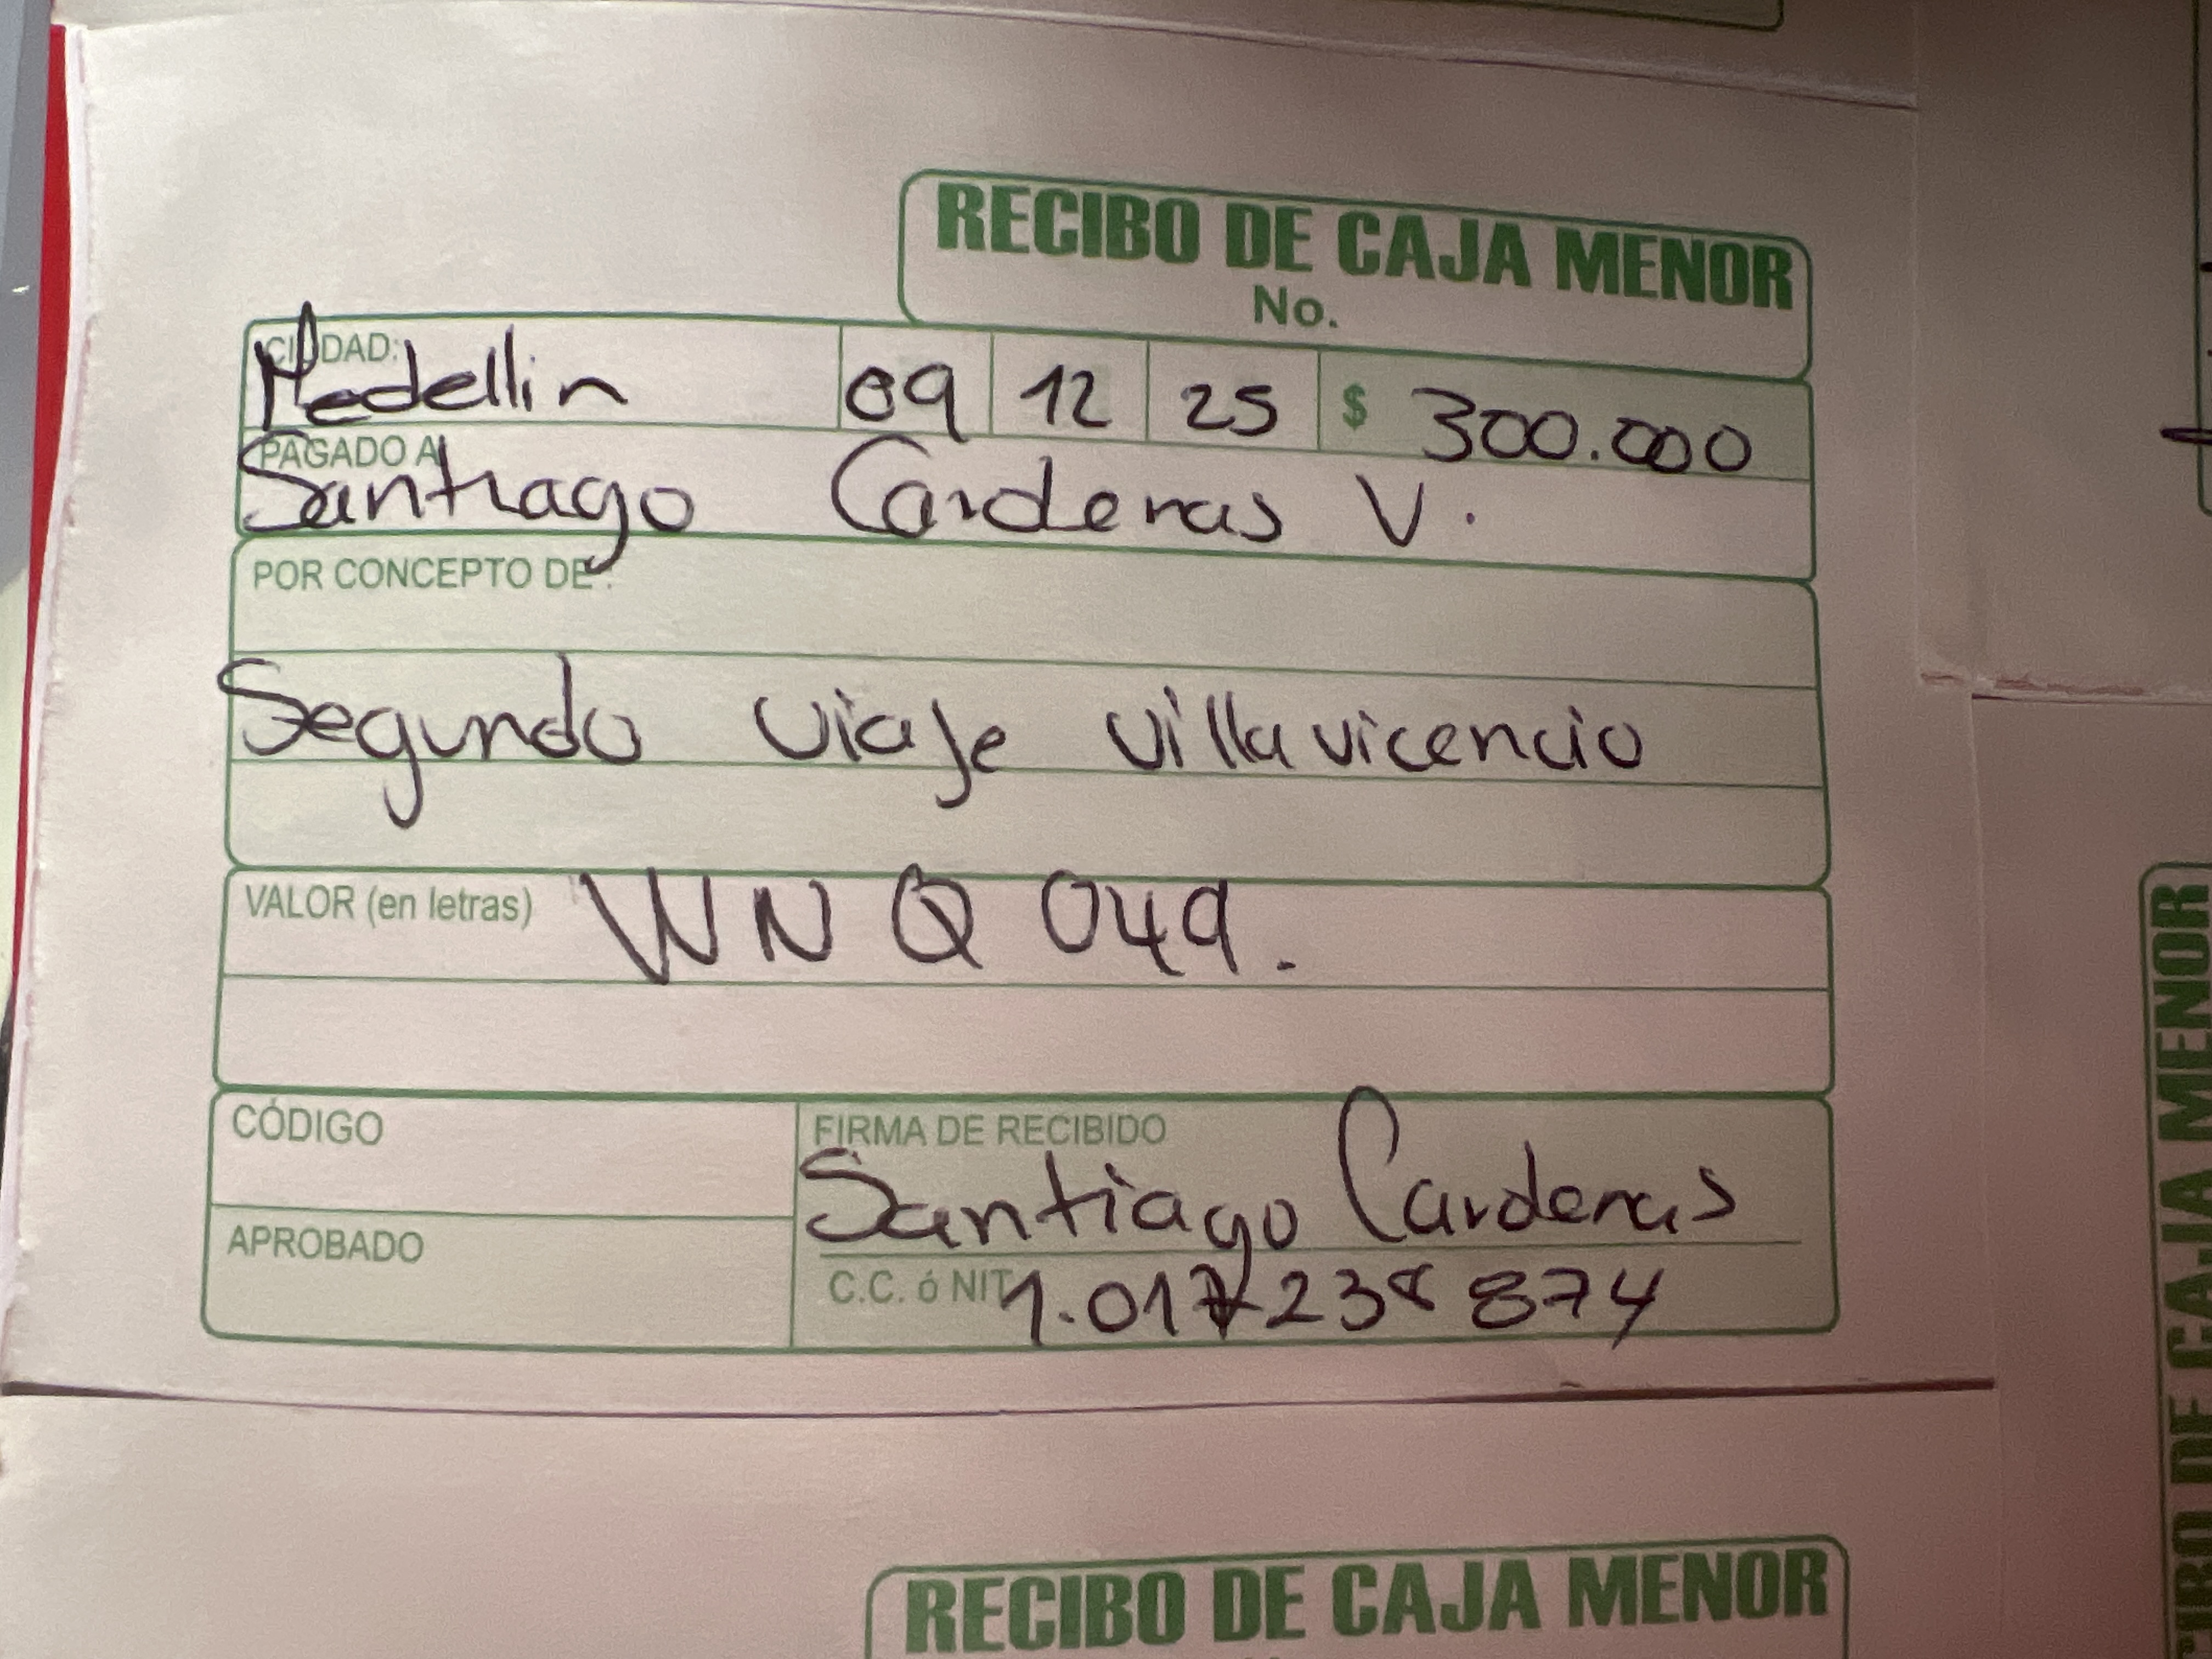 RECIBO DE CAJA MENOR
No.
CIUDAD: Medellin 09 12 25 $ 300.000
PAGADO A Santiago Cardenas V.
POR CONCEPTO DE:
Segundo viaje villavicencio
VALOR (en letras) WNQ 049.
CÓDIGO
FIRMA DE RECIBIDO Santiago Cardenas
APROBADO
C.C. ó NIT 1.017238874
RECIBO DE CAJA MENOR
RECIBO DE CAJA MENOR